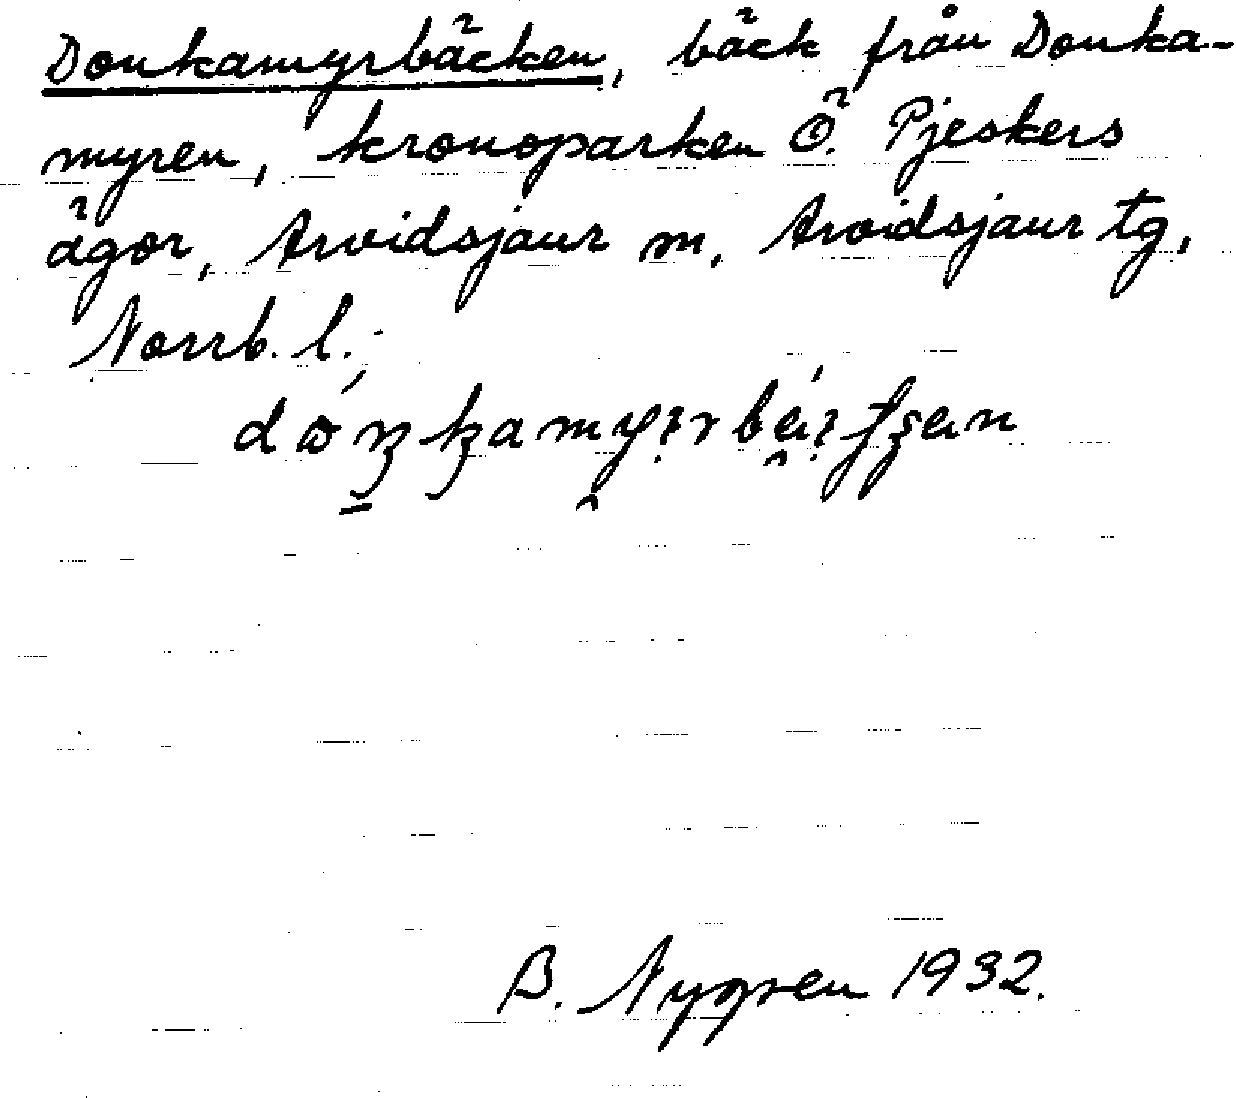 Donkamyrbäcken, bäck från Donka-
myren, kronoparken Ö. Pjeskers
ägor, Arvidsjaur sn, Arvidsjaur tg,
Norrb. l.;
B. Nygren 1932.